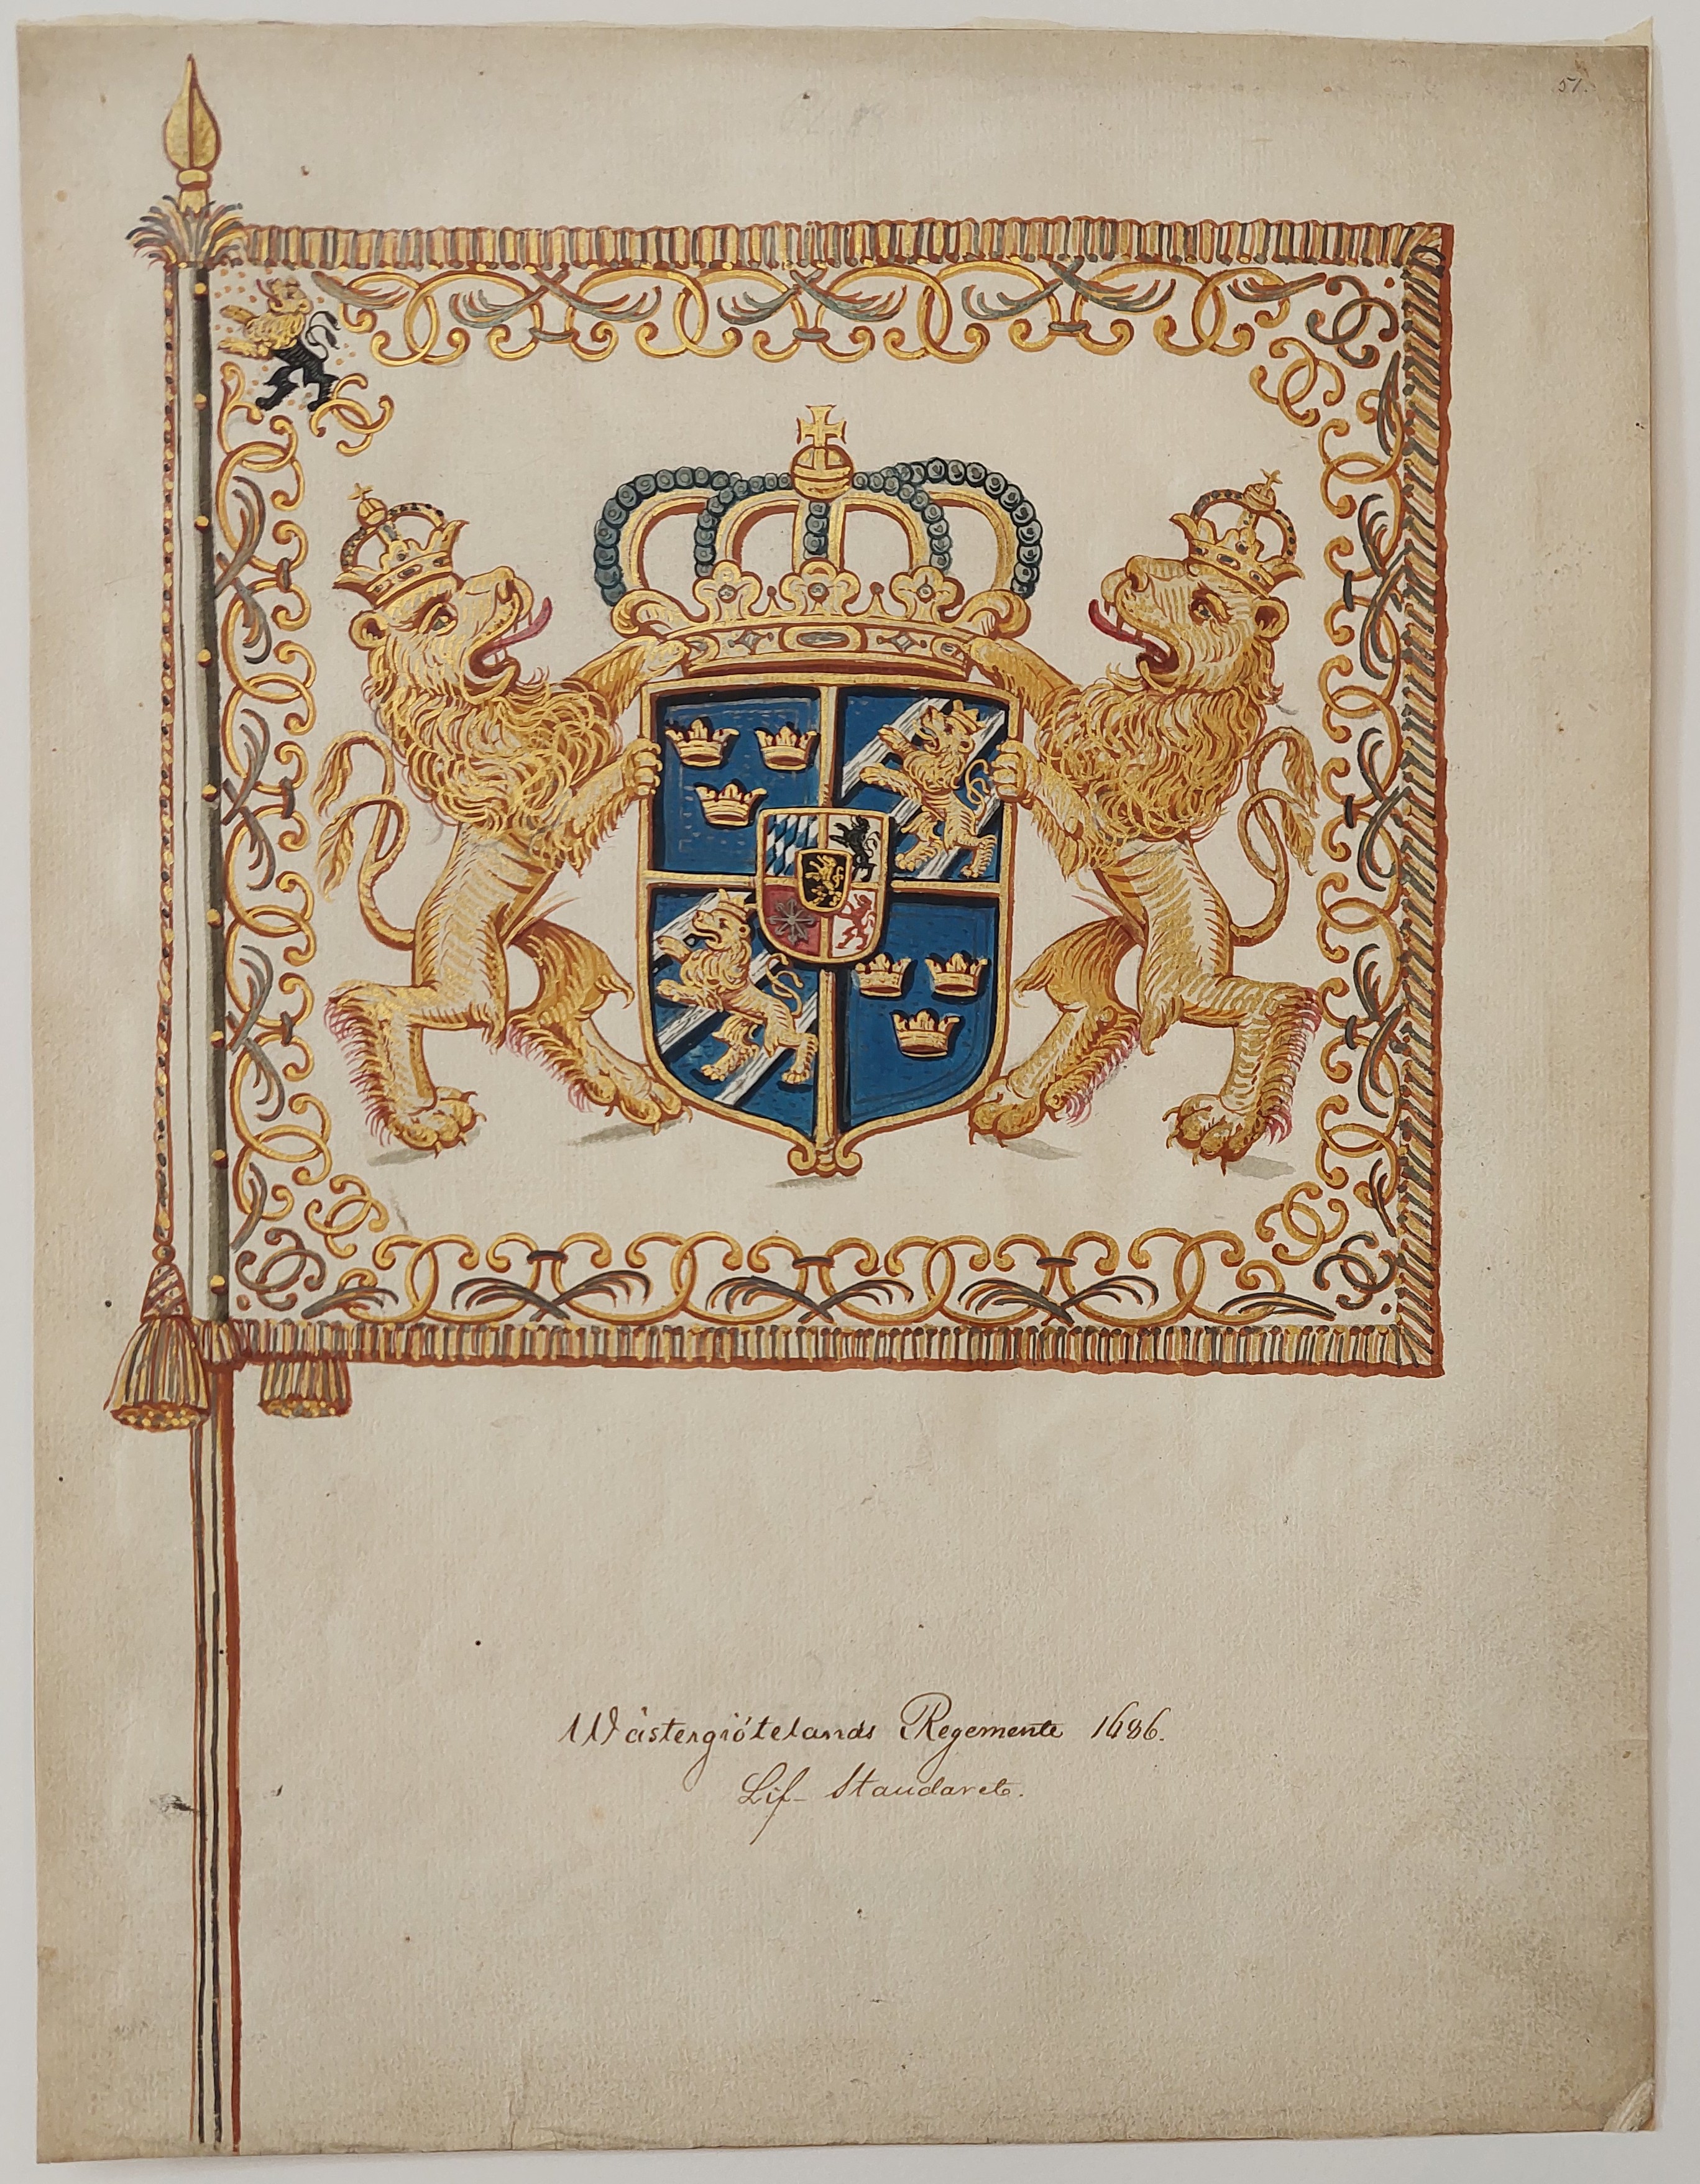 51.
Wästergiötelands Regemente 1686.
Lif- Standaret.